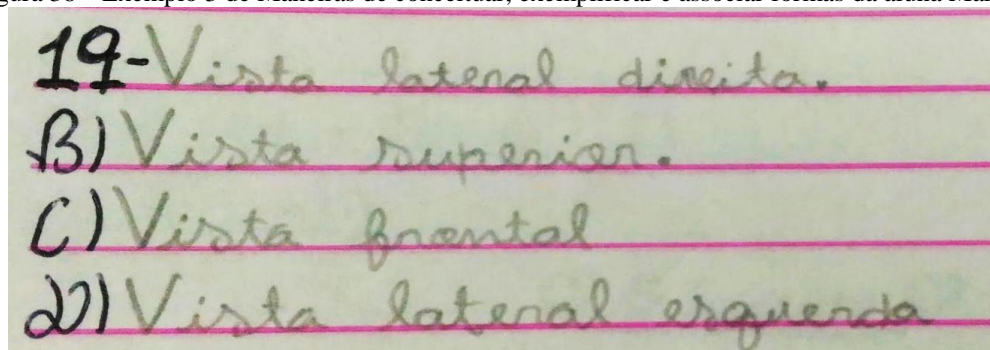 19-Vista lateral direita.
B) Vista superior.
C) Vista frontal
D) Vista lateral esquerda